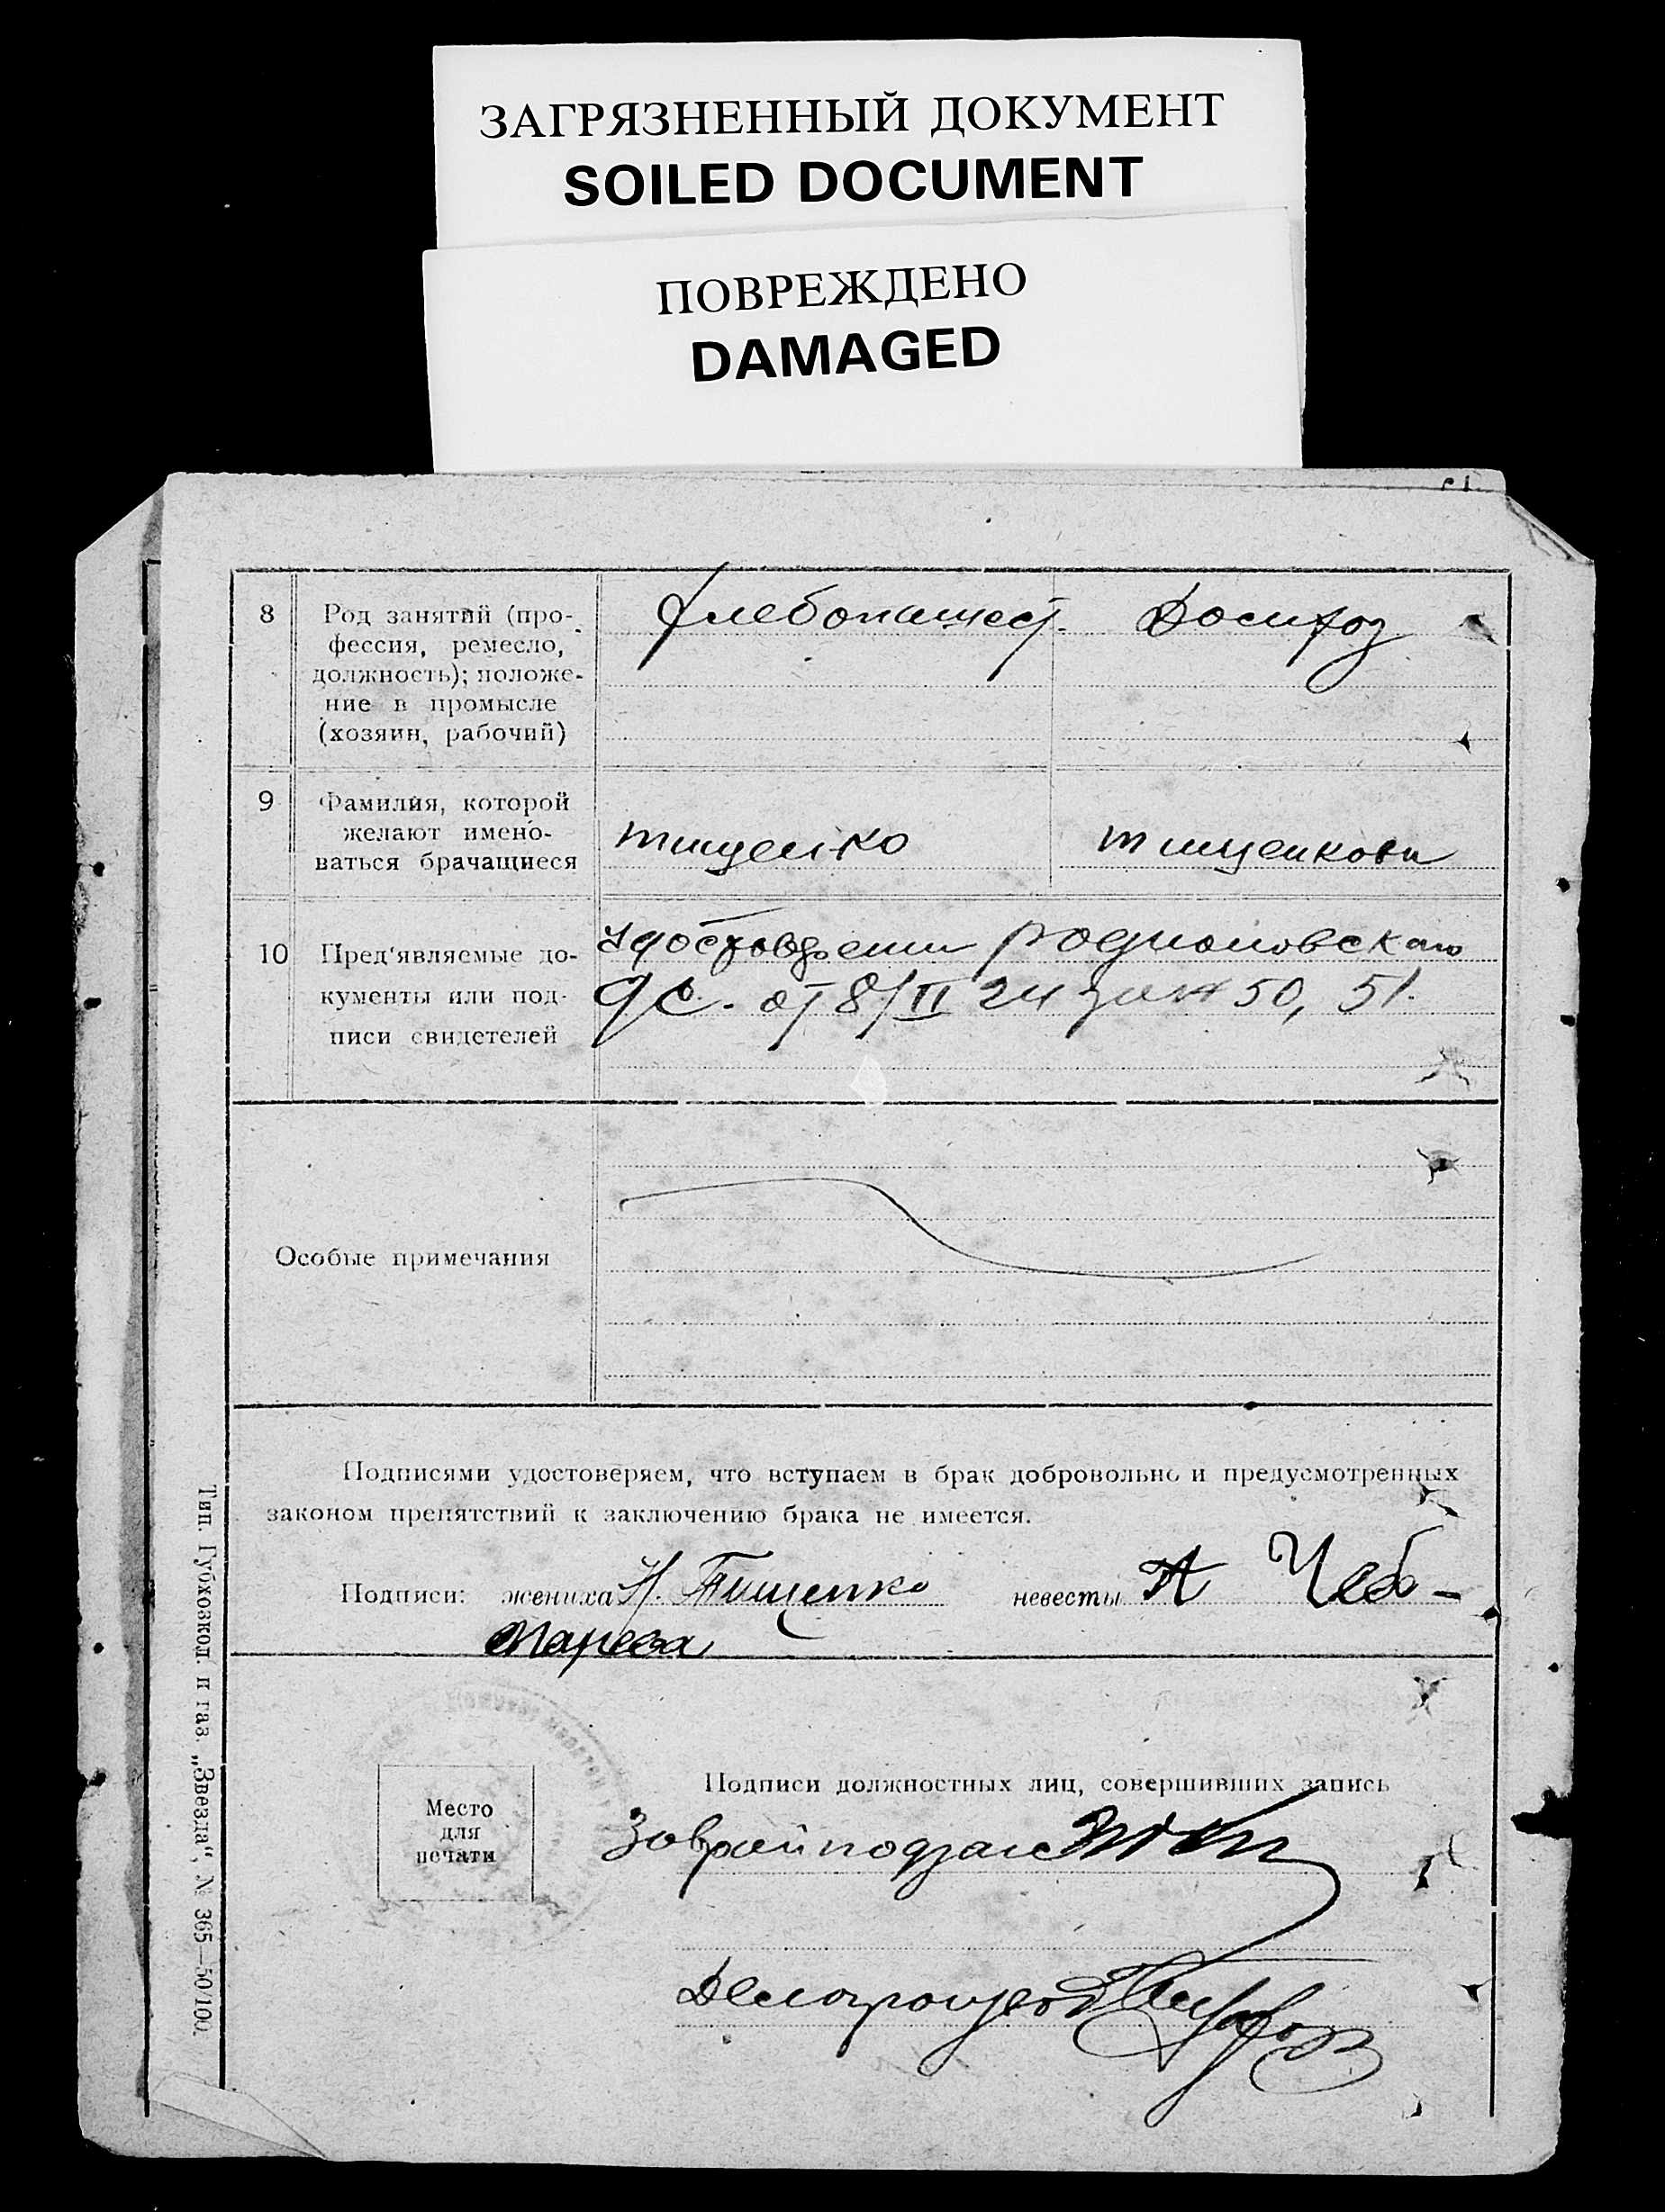 ЗАГРЯЗНЕННЫЙ ДОКУМЕНТ
SOILED DOCUMENT
ПОВРЕЖДЕНО
DAMAGED
8 Род занятий (про-
фессия, ремесло,
должность); положе-
ние в промысле
(хозяин, рабочий)
хлебопашест. Домхоз
9 Фамилия, которой
желают имено-
ваться брачащиеся
тищенко тищенкова
10 Пред'являемые до-
кументы или под-
писи свидетелей
Удостоверении родионовскаго
от 8/II 24 50, 51.
Особые примечания
Подписями удостоверяем, что вступаем в брак добровольно и предусмотренных
законом препятствий к заключению брака не имеется.
Подписи: жениха Н. Тищенко невесты А Чебо-
тарева
Место
для
печати
Подписи должностных лиц, совершивших запись
Заврайподзагс
Делопроизвод
Тип. Губхозкол. и газ. „Звезда“, № 365—50/100.